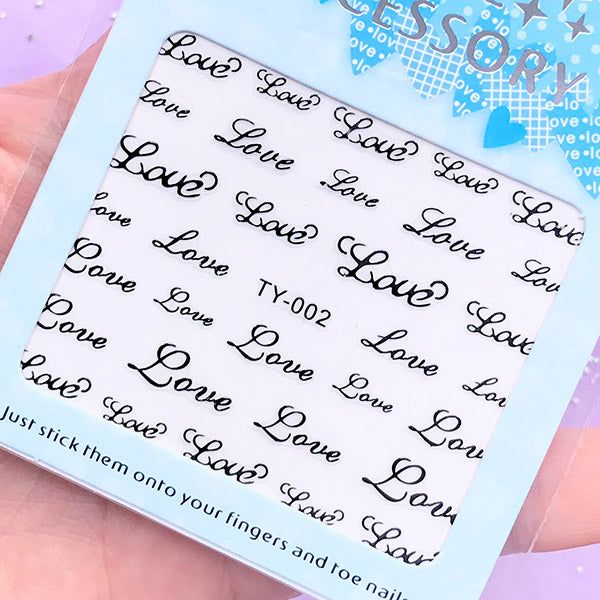 CESSORY
love
love
•lo
love•lo
Love Love Love Love Love
Love Love Love Love Love
Love Love Love Love
Love Love TY-002 Love Love
Love Love Love Love
Love Love Love Love
Love Love Love Love Love
Just stick them onto your fingers and toe nails